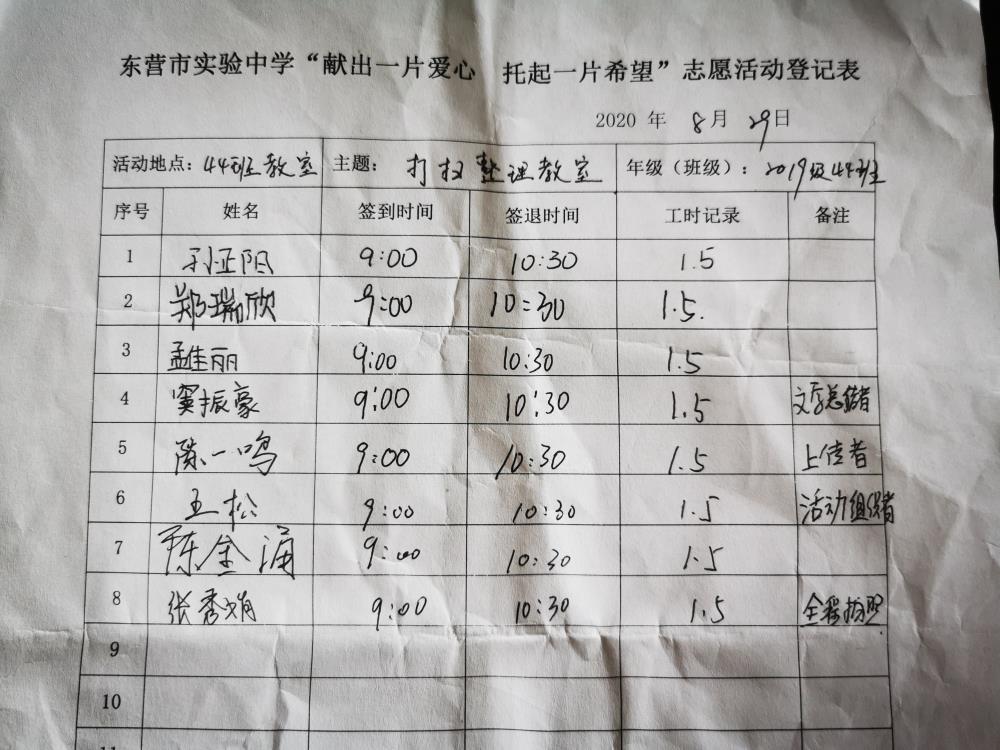 东营市实验中学“献出一片爱心 托起一片希望”志愿活动登记表
2020 年 8月 29日
活动地点：44班教室 主题： 打扫整理教室 年级（班级）：2019级44班
序号 姓名 签到时间 签退时间 工时记录 备注
1 9:00 10:30 1.5
2 郑瑞欣 9:00 10:30 1.5.
3 孟佳丽 9:00 10:30 1.5
4 窦振豪 9:00 10:30 1.5
5 陈一鸣 9:00 10:30 1.5 上传者
6 王松 9:00 10:30 1.5 活动组织者
7 陈金涌 9:00 10:30 1.5
8 张秀娟 9:00 10:30 1.5 全程拍照
9
10